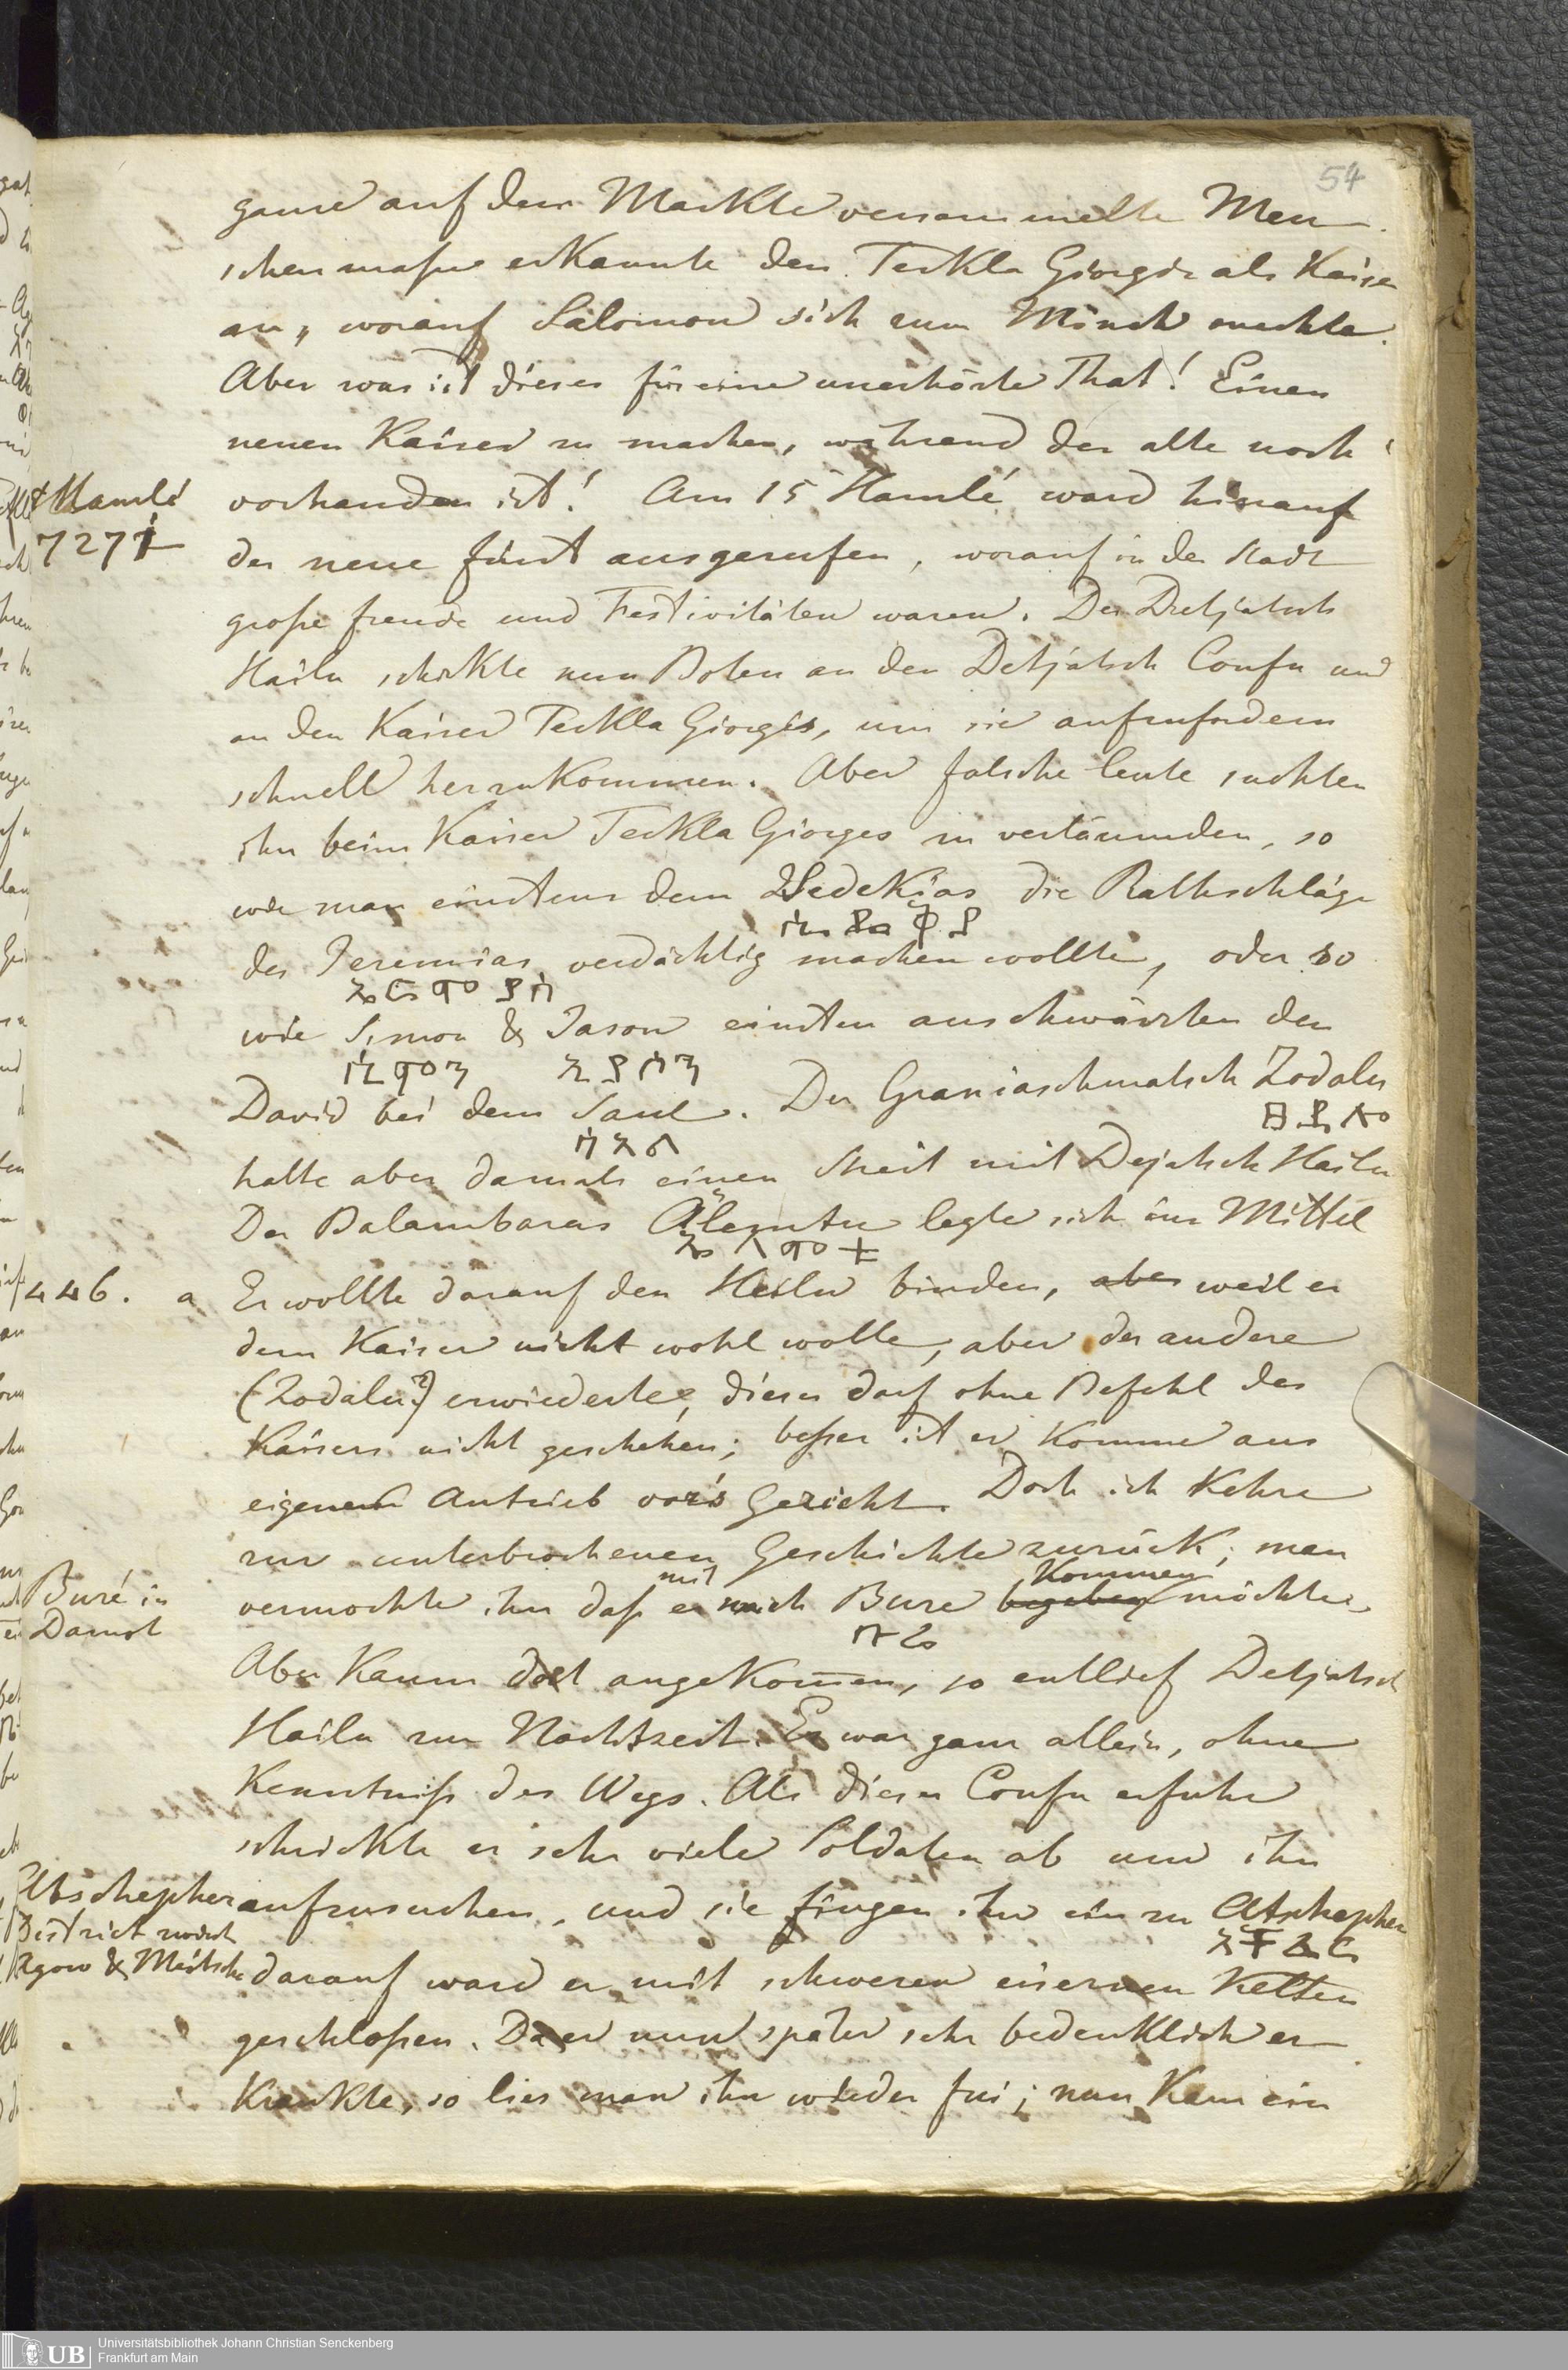 54
ganze auf dem Markte versammelte Men-
schenmaße erkannte den Teckla Giorgis als Kaiser
an, worauf Salomon sich zum Mönch machte.
Aber was ist dieses für eine unerhörte That! Einen
neuen Kaiser zu machen, während der alte noch
vorhanden ist! Am 15 Hamlé ward hierauf
Hamlé
7271
der neue Fürst ausgerufen, worauf in der Stadt
große Freude und Festivitäten waren. Der Detjatsch
Hailu schickte nun Boten an den Detjatsch Confu und
an den Kaiser Teckla Giorgis, um sie aufzufordern
schnell herzukommen. Aber falsche Leute suchten
ihn beim Kaiser Teckla Giorges zu verläumden, so
wie man einstens dem Sedekias die Rathschläge
ሴዴቅያ
des Jeremias verdächtig machen wollte, oder so
ኤርምያስ
wie Simon & Jason einsten anschwärzten den
ሲሞን ኢያሶን
David bei dem Saul. Der Graniaschmatsch Zodalu
ሳኦል ዘዳሉ
hatte aber damals einen Streit mit Dejatsch Hailu
Der Balambaras Älemtu legte sich ins Mittel
ኤለምቱ
446. a Er wollte darauf den Heilu binden, aber weil er
dem Kaiser nicht wohl wolle, aber der andere
(Zodalu?) erwiederte, dieses darf ohne Befehl des
Kaisers nicht geschehen; beßer ist er komme aus
eigenem Antrieb vor's Gericht. Doch ich kehre
zur unterbrochenen Geschichte zurück; man
vermochte ihn daß er mit nach Bure begeben kommen möchte.
Buré in
Damot
ቡሬ
Aber kaum dort angekom̅en, so entlief Detjatsch
Hailu zur Nachtzeit. Er war ganz allein, ohne
Kenntniß des Wegs. Als dieses Confu erfuhr
schickte er sehr viele Soldaten ab um ihn
aufzusuchen, und sie fingen ihn ein zu Atschepher
Atschepher
District nördl
Agow & Meitsche
አቸፈር
darauf ward er mit schweren eisernen Ketten
geschloßen. Da er nun später sehr bedenklich er-
krankte, so lies man ihn wieder frei; nun kam ein
UB
Universitätsbibliothek Johann Christian Senckenberg
Frankfurt am Main